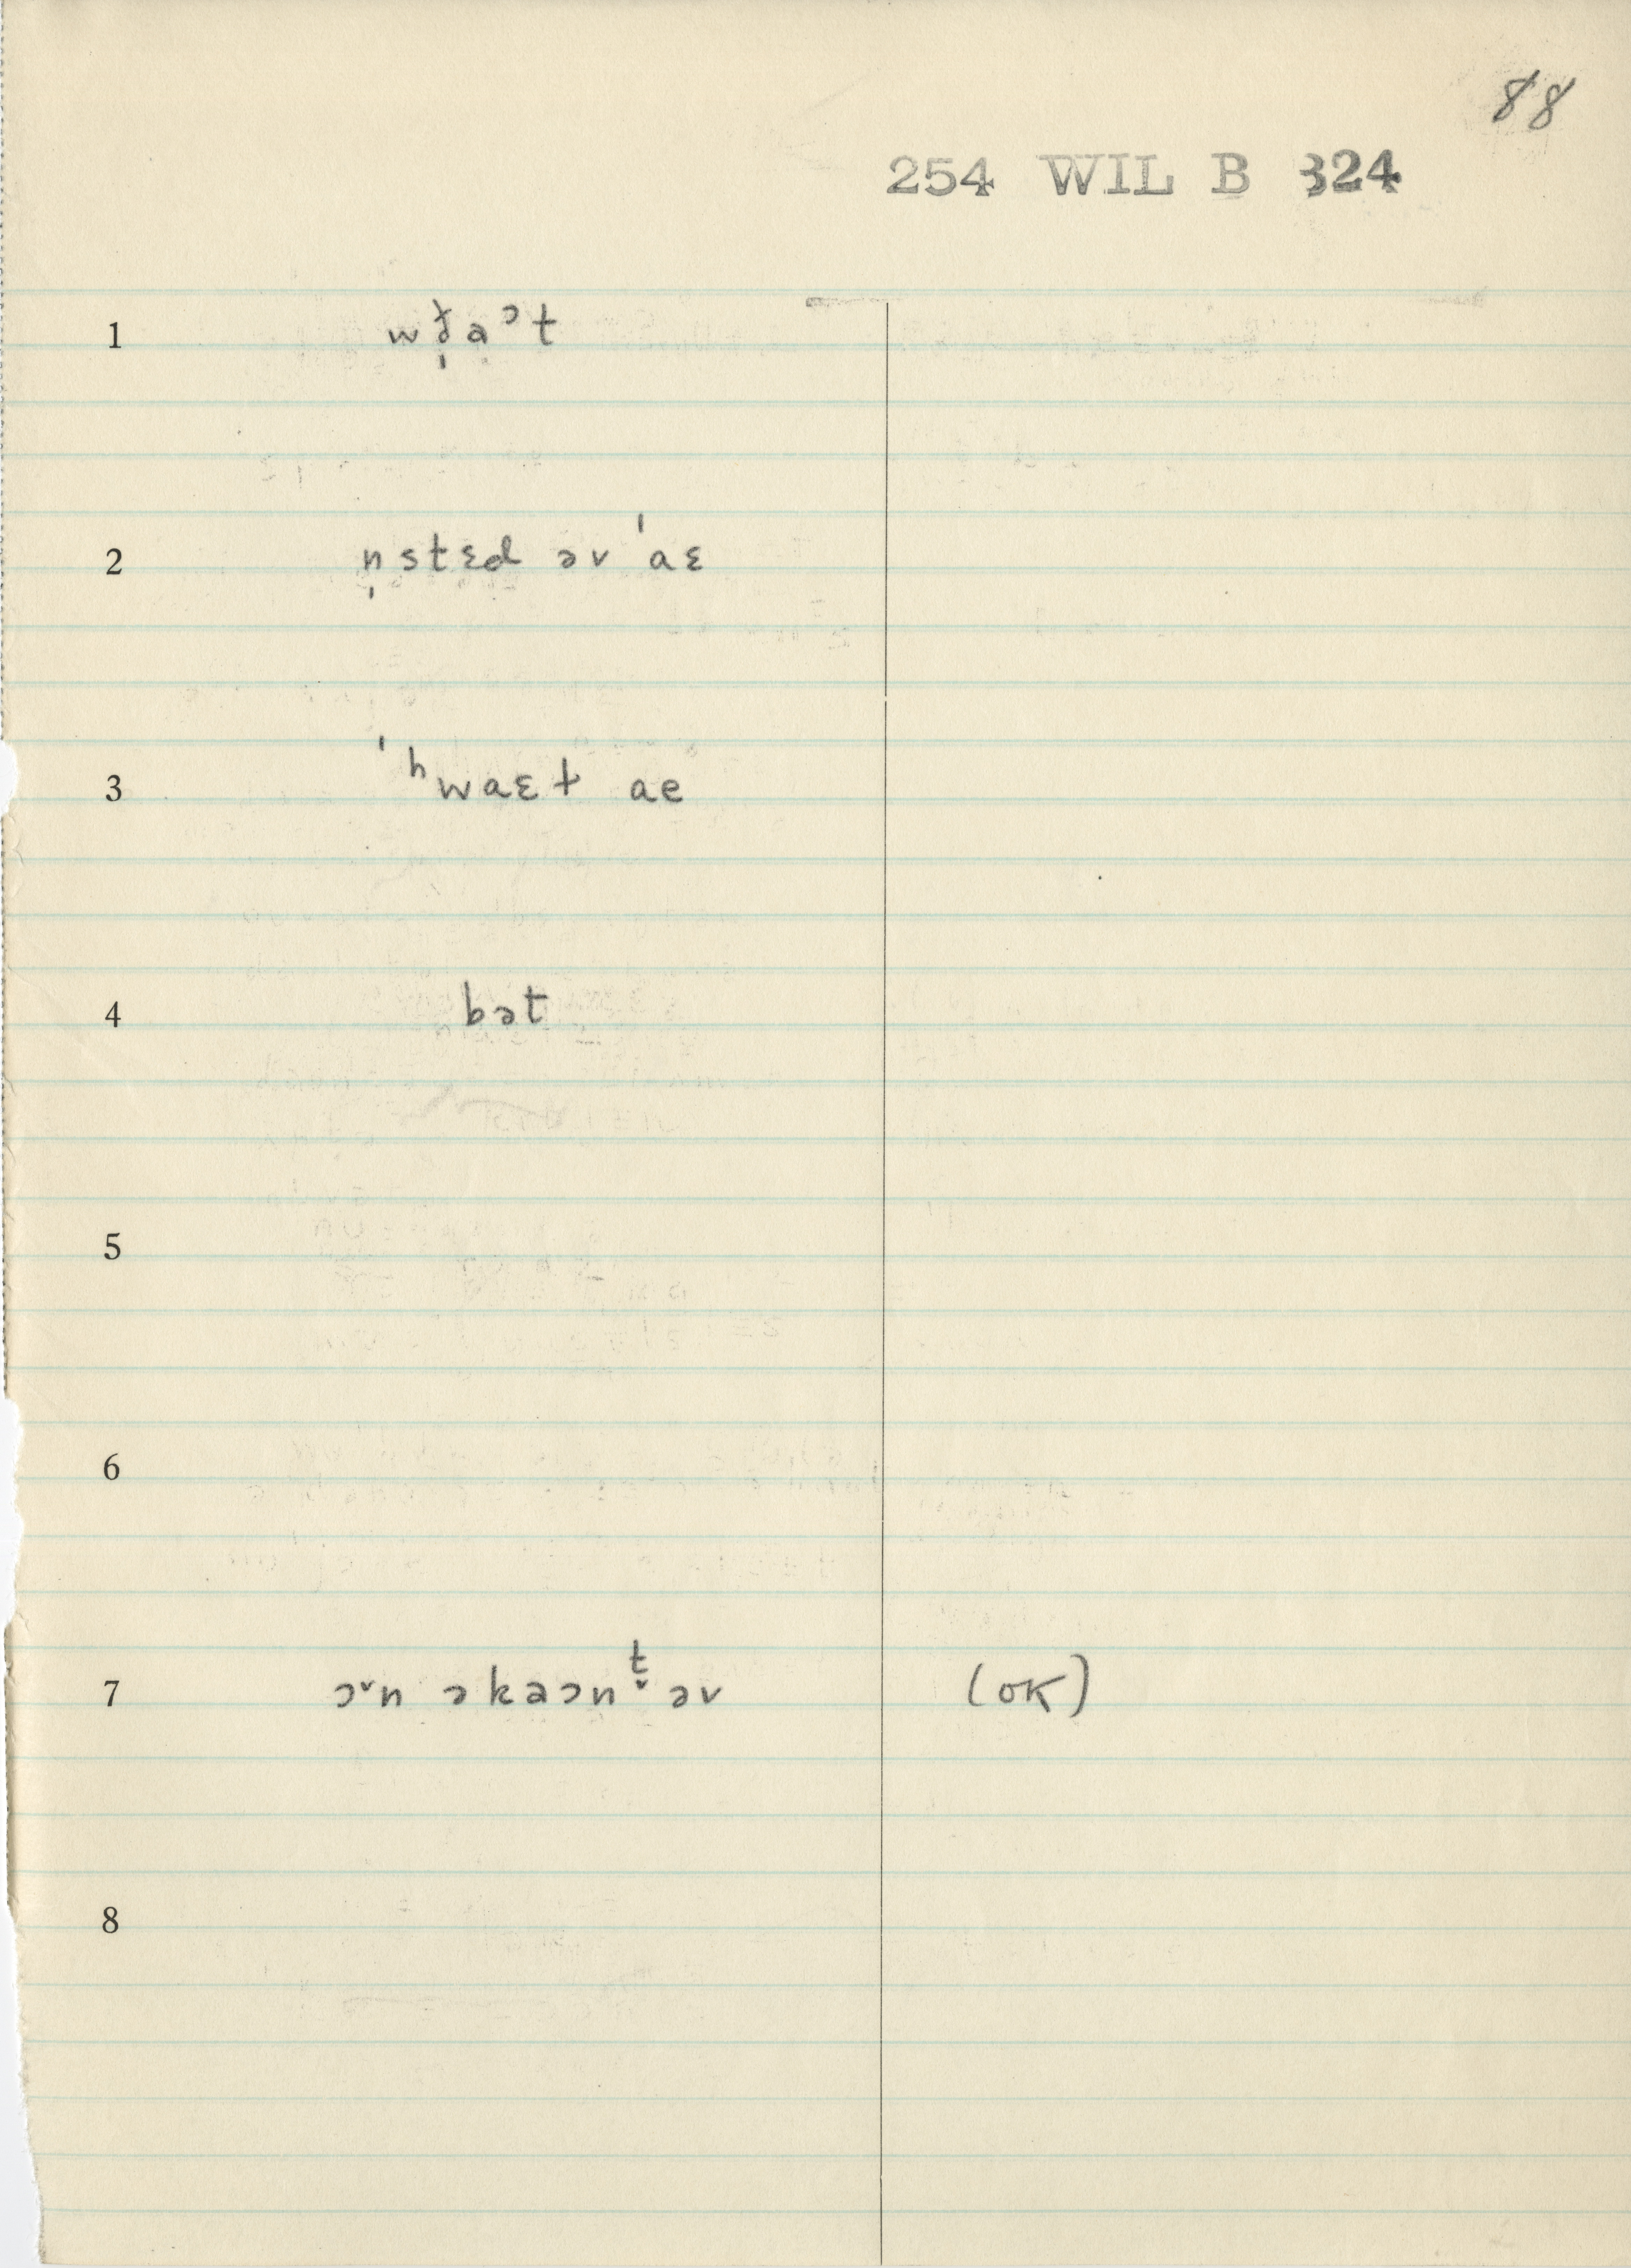 88
254 WIL B 324
1 wð̩aᵓt
2 n̩stɛd əv ˈaɛ
3 ˈʰwaɛɫ ae
4 bət
5
6
7 ɔᵛn əkaɔnt̬ əv (OK)
8